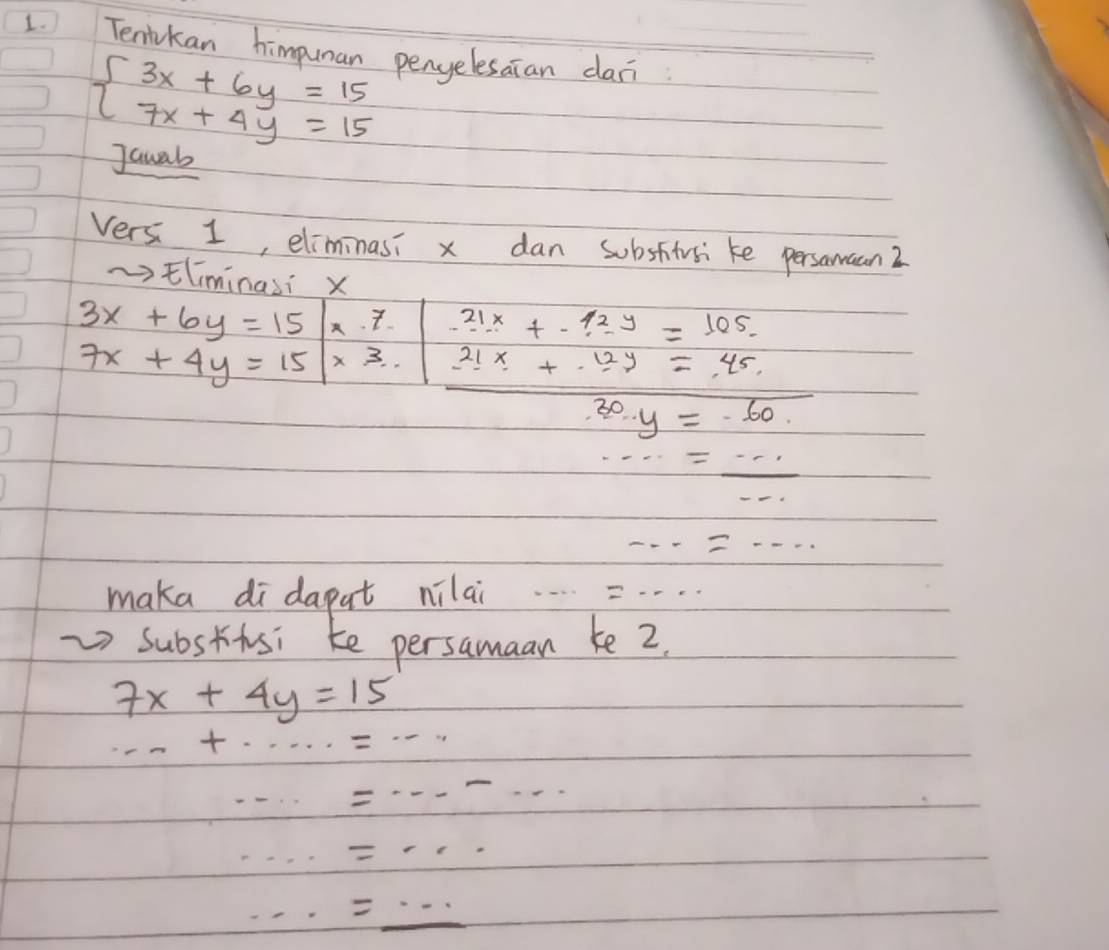 1. Tentukan himpunan penyelesaian dari :
{ 3x + 6y = 15
7x + 4y = 15
Jawab
Versi 1, eliminasi x dan substitusi ke persamaan 2
~> Eliminasi x
3x + 6y = 15 | x 7 | 21x + 42y = 105
7x + 4y = 15 | x 3 | 21x + 12y = 45
30y = 60
.... = ....
....
.... = ....
maka di dapat nilai .... = ....
~> Substitusi ke persamaan ke 2.
7x + 4y = 15
.... + ..... = ....
.... = .... - ....
.... = ....
.... = ....